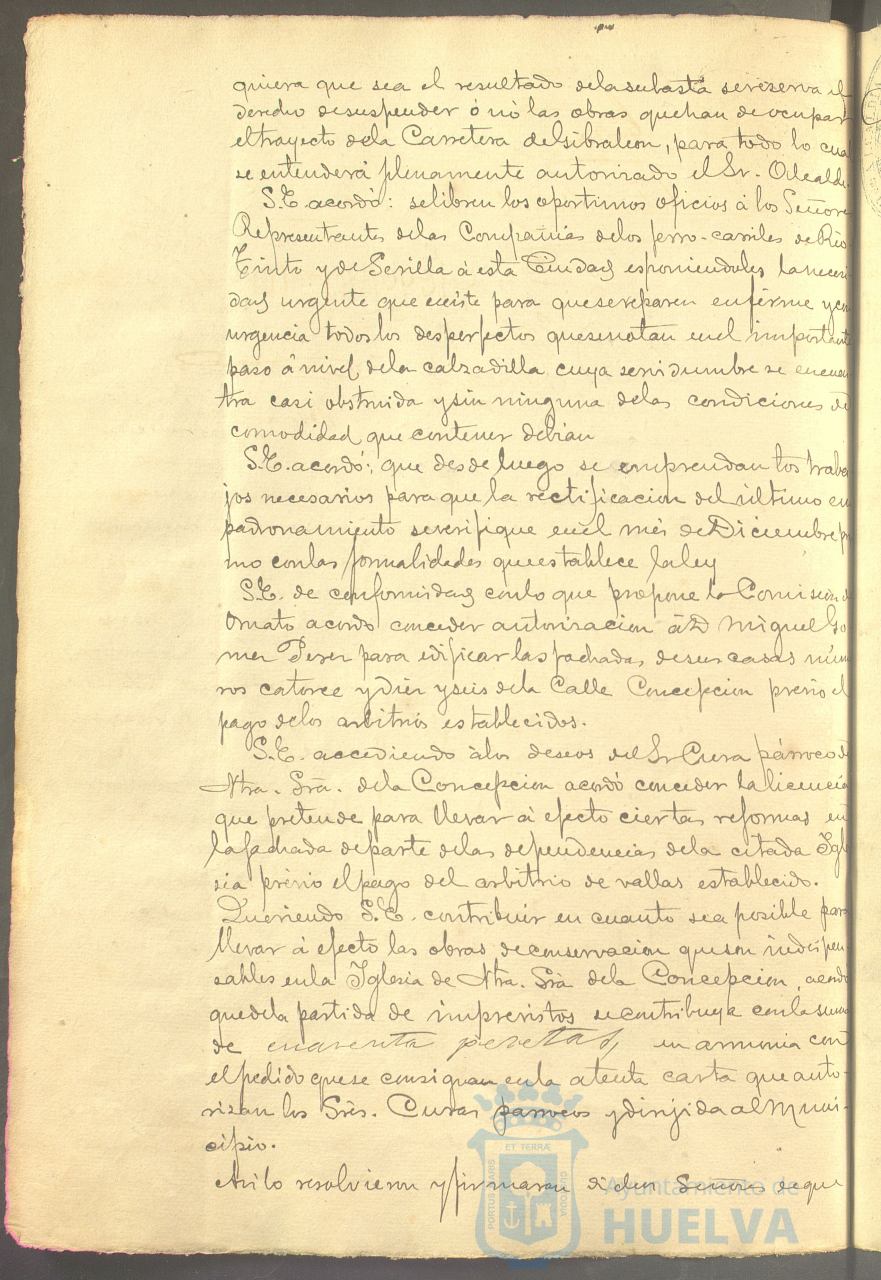 quiera que sea el resultado dela subasta sereserva el
derecho desuspender ó nó las obras quehan de ocupar
eltrayecto dela Carretera deGibraleon, para todo lo cua
se entenderá plenamente autorizado el Sr. Alcalde
S.E. acordó: selibren los oportunos oficios á los Señore
Representantes delas Compañias delos ferro-carriles de Rio
Tinto y de Sevilla á esta Ciudad esponiendoles laneces
dad urgente que existe para quesereparen enfirme ycon
urgencia todoslos desperfectos quesenotan enel importante
paso á nivel dela calzadilla cuya servidumbre se encuen
tra casi obstruida ysin ninguna delas condiciones de
comodidad que contener debian
S.E. acordó: que desde luego se emprendan los traba
jos necesarios para que la rectificacion del último em
padronamiento severifique enel més deDiciembre pr
mo conlas formalidades queestablece laley
S.E. de conformidad conlo que propone la Comision d
Ornato acordo conceder autorizacion á D Miguel Go
mez Perez para edificar las fachadas desus casas núm
ros catorce y diez yseis dela Calle Concepcion previo el
pago delos arbitrios establecidos.
S.E. accediendo álos deseos del Sr Cura párroco d
Ntra. Sra. dela Concepcion acordó conceder la licencia
que pretende para llevar á efecto ciertas reformas en
lafachada departe delas dependencias dela citada Igle
sia prévio elpago del arbitrio de vallas establecido.
Queriendo S.E. contribuir en cuanto sea posible para
llevar á efecto las obras deconservacion queson indispen
sables enla Iglesia de Ntra. Sra dela Concepcion, acordo
quedela partida de imprevistos secontribuya conla suma
de cuarenta pesetas, en armonia con
elpedido quese consignan enla atenta carta que auto-
rizan los Sres. Curas parrocos ydirijida al Muni-
cipio.
Asi lo resolvieron y firmaran dichos Señores deque
PORTUS MARIS
ET TERRÆ
CUSTODIA
Ayuntamiento de
HUELVA